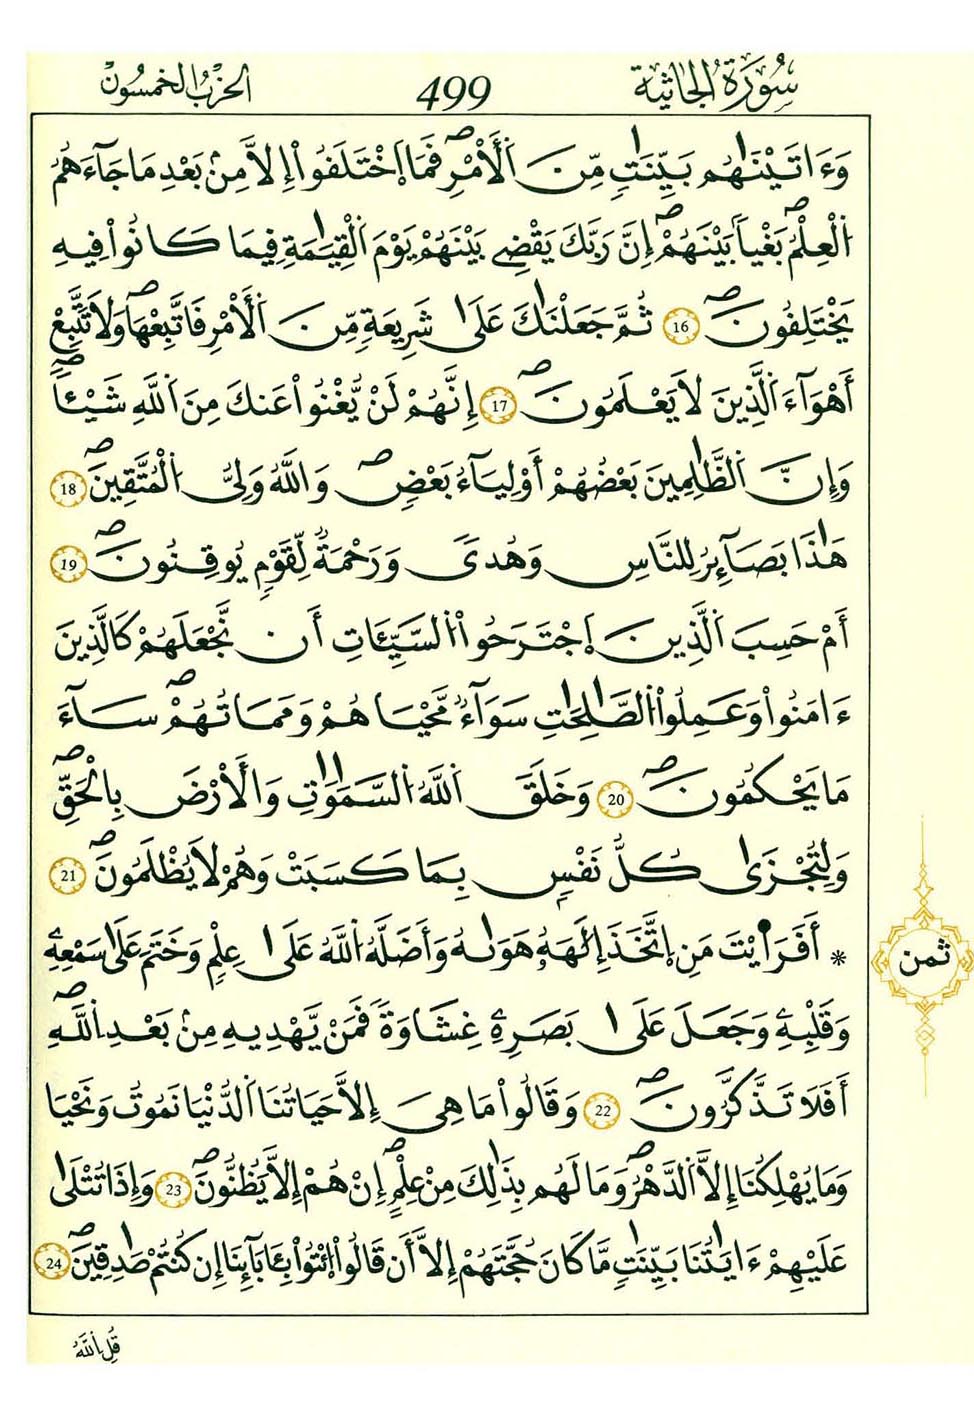 سُورَةُ الجَاثِيَة
499
الحِزْبُ الخَمسُون
وَءَاتَيْنَٰهُم بَيِّنَٰتٖ مِّنَ اَ۬لَأمْرِۖ فَمَا اَ۪خْتَلَفُوٓاْ إِلَّا مِنۢ بَعْدِ مَا جَآءَهُمُ
اُ۬لْعِلْمُۖ بَغْياَۢ بَيْنَهُمْۖ إِنَّ رَبَّكَ يَقْضِے بَيْنَهُمْ يَوْمَ اَ۬لْقِيَٰمَةِ فِيمَا كَانُواْ فِيهِ
يَخْتَلِفُونَۖ 16 ثُمَّ جَعَلْنَٰكَ عَلَىٰ شَرِيعَةٖ مِّنَ اَ۬لَأمْرِ فَاتَّبِعْهَاۖ وَلَا تَتَّبِعَ
اَهْوَآءَ اَ۬لذِينَ لَا يَعْلَمُونَۖ 17 إِنَّهُمْ لَنْ يُّغْنُواْ عَنكَ مِنَ اَ۬للَّهِ شَيْـٔاٗۖ
وَإِنَّ اَ۬لظَّٰلِمِينَ بَعْضُهُمُۥٓ أَوْلِيَآءُ بَعْضٖۖ وَاللَّهُ وَلِيُّ اُ۬لْمُتَّقِينَۖ 18
هَٰذَا بَصَٰٓئِرُ لِلنَّاسِ وَهُدىٗ وَرَحْمَةٞ لِّقَوْمٖ يُوقِنُونَۖ 19
أَمْ حَسِبَ اَ۬لذِينَ اَ۪جْتَرَحُواْ اُ۬لسَّيِّـَٔاتِ أَن نَّجْعَلَهُمْ كَالذِينَ
ءَامَنُواْ وَعَمِلُواْ اُ۬لصَّٰلِحَٰتِ سَوَآءٞ مَّحْيَاهُمْ وَمَمَاتُهُمْۖ سَآءَ
مَا يَحْكُمُونَۖ 20 وَخَلَقَ اَ۬للَّهُ اُ۬لسَّمَٰوَٰتِ وَالَأرْضَ بِالْحَقِّۖ
وَلِتُجْزَىٰ كُلُّ نَفْسِۢ بِمَا كَسَبَتْ وَهُمْ لَا يُظْلَمُونَۖ 21
* أَفَرَٰٓيْتَ مَنِ اِ۪تَّخَذَ إِلَٰهَهُۥ هَوَىٰهُ وَأَضَلَّهُ اُ۬للَّهُ عَلَىٰ عِلْمٖ وَخَتَمَ عَلَىٰ سَمْعِهِۦ
وَقَلْبِهِۦ وَجَعَلَ عَلَىٰ بَصَرِهِۦ غِشَٰوَةٗ فَمَنْ يَّهْدِيهِ مِنۢ بَعْدِ اِ۬للَّهِۖ
أَفَلَا تَذَّكَّرُونَۖ 22 وَقَالُواْ مَا هِيَ إِلَّا حَيَاتُنَا اَ۬لدُّنْيَا نَمُوتُ وَنَحْيَا
وَمَا يُهْلِكُنَآ إِلَّا اَ۬لدَّهْرُۖ وَمَا لَهُم بِذَٰلِكَ مِنْ عِلْمٍۖ إِنْ هُمْ إِلَّا يَظُنُّونَۖ 23 وَإِذَا تُتْلَىٰ
عَلَيْهِمْ ءَايَٰتُنَا بَيِّنَٰتٖ مَّا كَانَ حُجَّتَهُمْ إِلَّآ أَن قَالُواْ اُ۪ئْتُواْ بِـَٔابَآئِنَآ إِن كُنتُمْ صَٰدِقِينَۖ 24
ثمن
قُلِ اِ۬للَّهُ